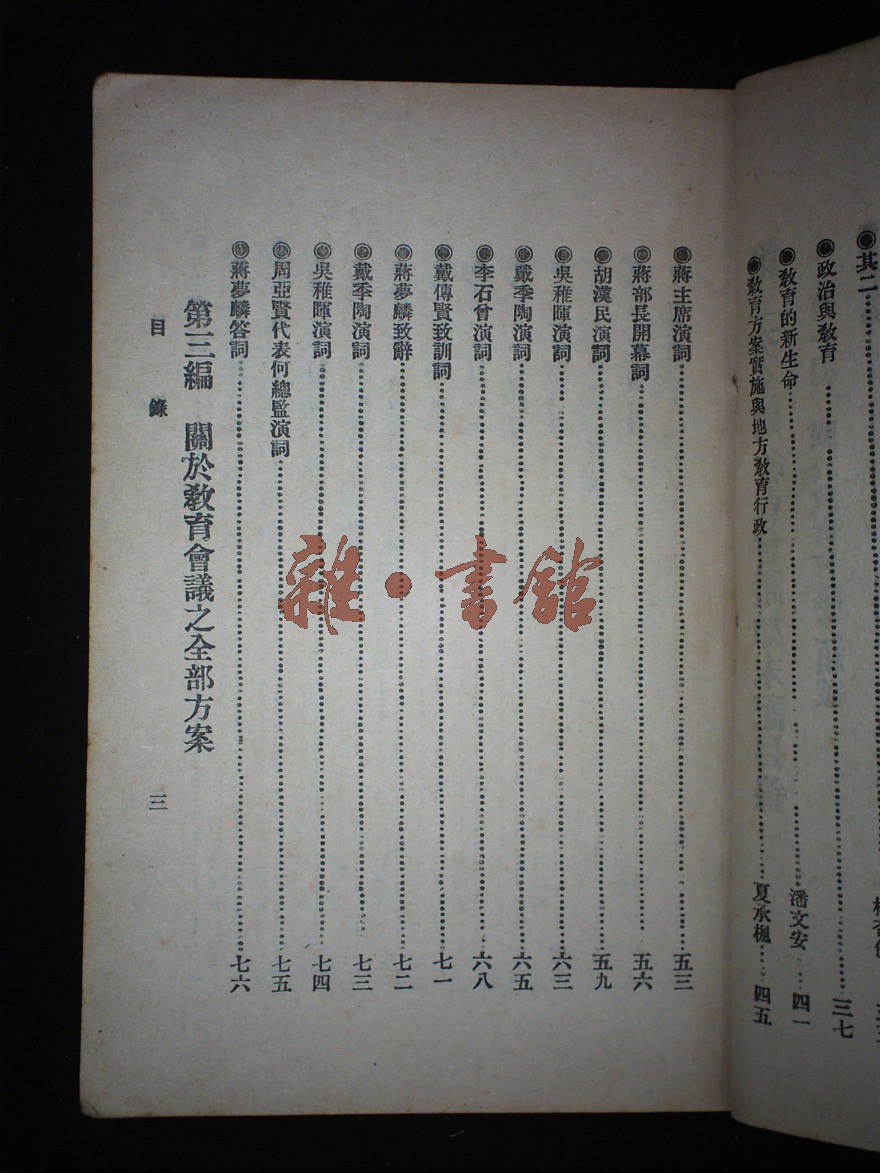 ◉其二
◉政治與教育……三七
◉教育的新生命……潘文安……四一
◉教育方案實施與地方教育行政……夏承楓……四五
◉蔣主席演詞……五三
◉蔣部長開幕詞……五六
◉胡漢民演詞……五九
◉吳稚暉演詞……六三
◉戴季陶演詞……六五
◉李石曾演詞……六八
◉戴傳賢致訓詞……七一
◉蔣夢麟致辭……七二
◉戴季陶演詞……七三
◉吳稚暉演詞……七四
◉周亞賢代表何總監演詞……七五
◉蔣夢麟答詞……七六
第三編 關於教育會議之全部方案
目錄 三
雜·書館